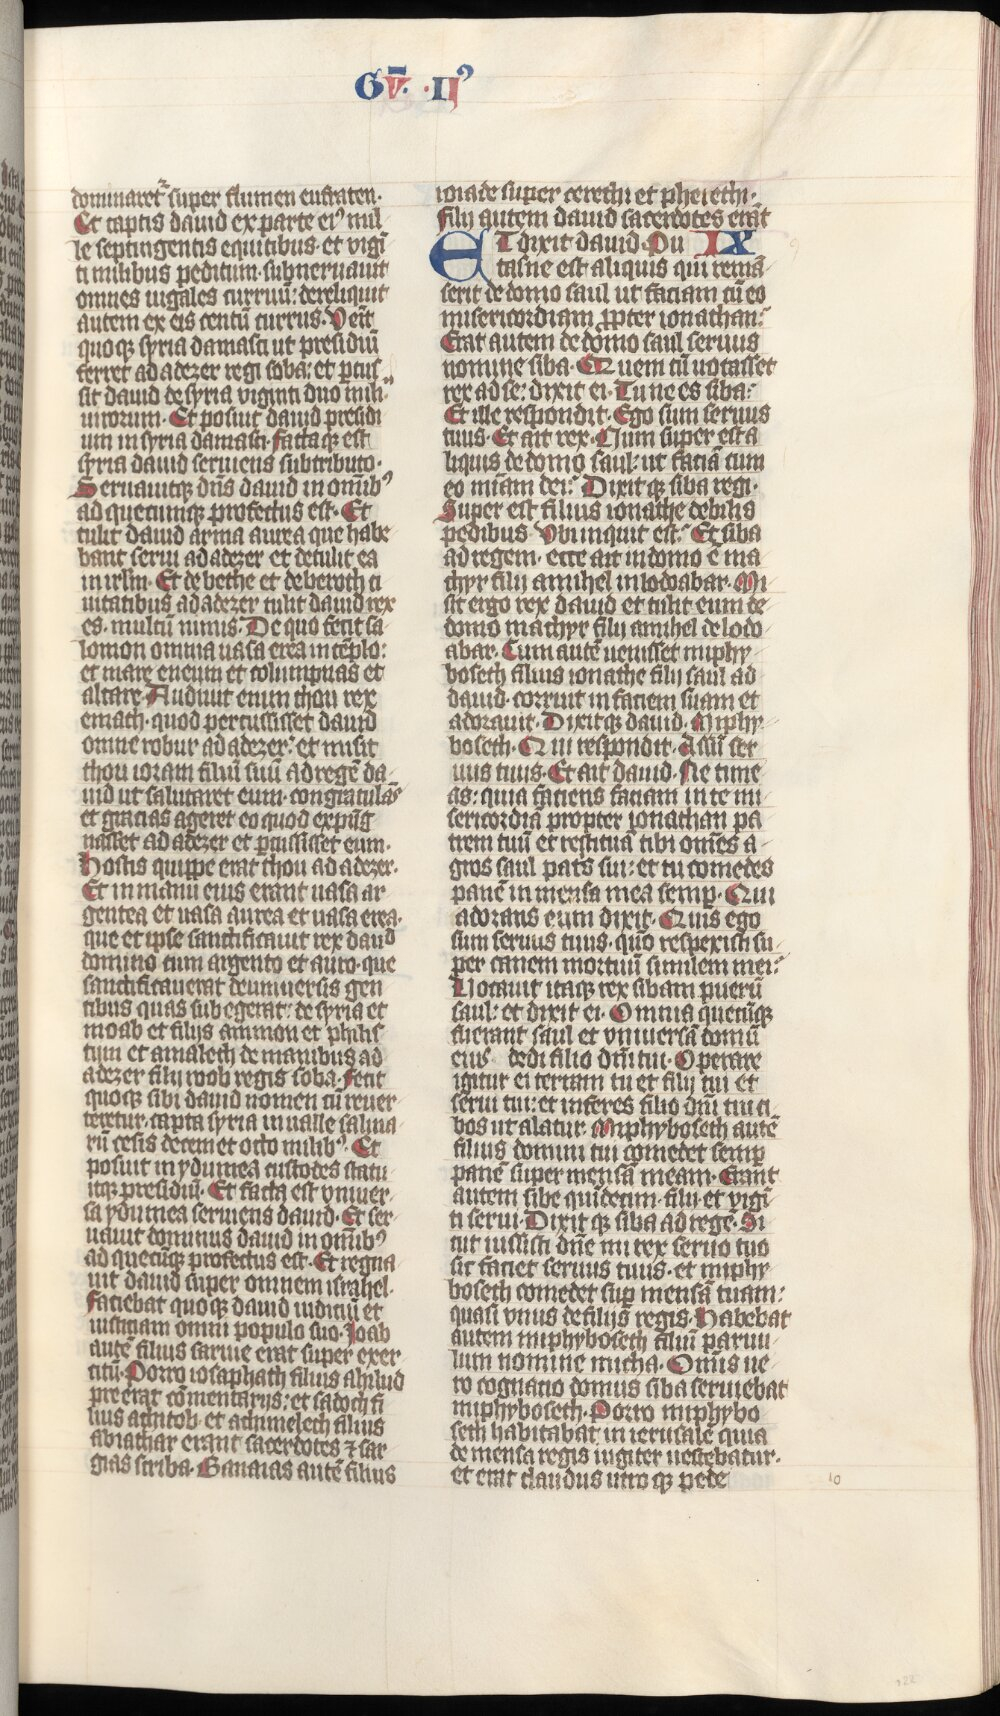 Gv̄· ·IIꝰ
dominaret᷑ super flumen eufraten·
Et captis dauid ex parte eiꝰ mil
le septingentis equitibus· et vigī
ti milibus peditum· subneruauit
omnes iugales curruū: dereliquit
autem ex eis centū currus· Veīt
quoqꝫ syria damasci ut presidiū
ferret adadezer regi soba: et ꝑcus
sit dauid de syria viginti duo mili
uirorum· Et posuit dauid presidi
um in syria damasci· factaqꝫ est
syria dauid seruiens sub tributo·
Seruauitqꝫ dn̄s dauid in om̄ibꝰ
ad quecumqꝫ profectus est· Et
tulit dauid arma aurea que habe
bant serui adadezer et detulit ea
in irlm̄· Et de bethe et de beroth ci
uitatibus adadezer tulit dauid rex
es· multū nimis· De quo fecit sa
lomon omnia uasa erea in tēplo:
et mare eneum et columpnas et
altare· Audiuit enim thou rex
emath· quod percussisset dauid
omne robur adadezer: et misit
thou ioram filiū suū ad regē da
uid ut salutaret eum· congratulās
et gracias ageret eo quod expūg
nasset adadezer et ꝑcussisset eum·
Hostis quippe erat thou adadezer·
Et in manu eius erant uasa ar
gentea et uasa aurea et uasa erea·
que et ipse sanctificauit rex dauid
domino cum argento et auro· que
sanctificauerat de uniuersis gen
tibus quas subegerat: de syria et
moab et filijs ammon et philis
tijm et amalech de manubijs ad
adezer filij roob regis soba· Fecit
quoqꝫ sibi dauid nomen cū reuer
teretur· capta syria in ualle salina
rū cesis decem et octo milibꝰ· Et
posuit in ydumea custodes statu
itqꝫ presidiū· Et facta est vniuer
sa ydumea seruiens dauid· Et ser
uauit dominus dauid in om̄ibꝰ
ad quecūqꝫ profectus est· Et regna
uit dauid super omnem israhel·
faciebat quoqꝫ dauid iudiciū et
iusticiam omni populo suo· Ioab
autē filius saruie erat super exer
citū· Porro iosaphath filius ahilud
preerat a cōmentarijs: et sadoch fi
lius achitob· et achimelech filius
abiathar erant sacerdotes ⁊ sar
gias scriba· Banaias autē filius
ioiade super cerethi et phelethi·
filij autem dauid sacerdotes erāt
ET dixit dauid· Pu IX
tasne est aliquis qui remā
serit de domo saul ut faciam cū eo
misericordiam ꝓpter ionathan:
Erat autem de domo saul seruus
nomine siba· Quem cū uocasset
rex ad se: dixit ei· Tu ne es siba:
Et ille respondit· Ego sum seruus
tuus· Et ait rex· Num super est a
liquis de domo saul: ut faciā cum
eo mīam dei: Dixitqꝫ siba regi·
Super est filius ionathe debilis
pedibus· Vbi inquit est: Et siba
ad regem· ecce ait in domo ē ma
chyr filij amihel in lodoabar· Mi
sit ergo rex dauid et tulit eum de
domo machyr filij amihel de lodo
abar· Cum autē uenisset miphy
boseth filius ionathe filij saul ad
dauid· corruit in faciem suam et
adorauit· Dixitqꝫ dauid· Miphy
boseth· Qui respondit· Assū ser
uus tuus· Et ait dauid· Ne time
as: quia faciens faciam in te mi
sericordiā propter ionathan pa
trem tuū et restituā tibi om̄es a
gros saul patˢ tui: et tu comedes
panē in mensa mea semꝑ· Qui
adorans eum dixit· Quis ego
sum seruus tuus· quō respexisti su
per canem mortuū similem mei:
Uocauit itaqꝫ rex sibam puerū
saul: et dixit ei· Omnia quecūqꝫ
fuerant saul et vniuersā domū
eius dedi filio dn̄i tui· Operare
igitur ei terram tu et filij tui et
serui tui: et inferes filio dn̄i tui ci
bos ut alatur· Miphyboseth autē
filius domini tui comedet semꝑ
panē super mensā meam· Erant
autem sibe quīdecim· filij et vigī
ti serui· Dixitqꝫ siba ad regē· Si
cut iussisti dn̄e mi rex seruo tuo
sic faciet seruus tuus· et miphy
boseth comedet suꝑ mensā tuam:
quasi vnus de filijs regis· Habebat
autem miphyboseth filiū paruu
lum nomine micha· Om̄is ue
ro cognatio domus siba seruiebat
miphyboseth· Porro miphybo
seth habitabat in ierusalē quia
de mensa regis iugiter uescebatur·
et erat claudus utroqꝫ pede
10
122